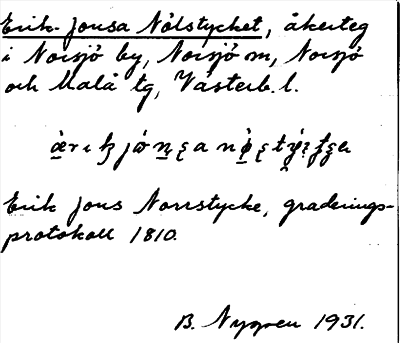 Erik-Jonsa Nölstycket, åkerteg
i Norsjö by, Norsjö m, Norsjö
och Malå tg, Västerb. l.
Erik Jons Norrstycke, graderings-
protokoll 1810.
B. Nygren 1931.